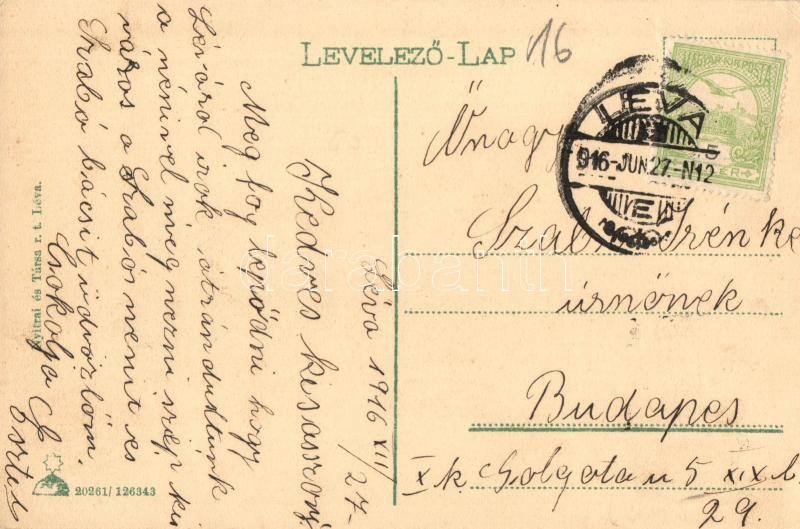 LEVELEZŐ-LAP
16
MAGYAR KIR. POSTA
LÉVA
5
916-JUN.27-N12
Őnagy
Szabó Irénke
úrnőnek
Budapes
X k. Golgota u 5 XIX b.
29.
Léva 1916 XII/27-
Kedves kisasszony
Meg fog lepődni hogy
Léváról irok átrándultunk
a nénivel megnezni szep kis
város a Szabó nenit és
Szabó bácsit üdvözlöm.
Csokolja
Eszter
Nyitrai és Társa r. t. Léva.
20261/126343
darabanth